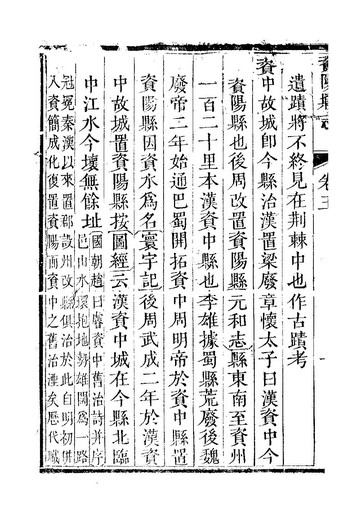 資陽縣志
卷三
遺蹟將不終見在荆棘中也作古蹟考
資中故城即今縣治漢置梁廢章懷太子曰漢資中今
資陽縣也後周改置資陽縣元和志縣東南至資州
一百二十里本漢資中縣也李雄據蜀縣荒廢後魏
廢帝二年始通巴蜀開拓資中周明帝於資中縣置
資陽縣因資水爲名寰宇記後周武成二年於漢資
中故城置資陽縣按圖經云漢資中城在今縣北臨
中江水今壞無餘址國朝趙曰睿資中舊治詩并序
邑山水環抱地勢雄闊爲一路
冠冕秦漢以來置郡設州改縣俱治於此自明初併
入資簡成化復置資陽而資中之舊治湮矣歷代職